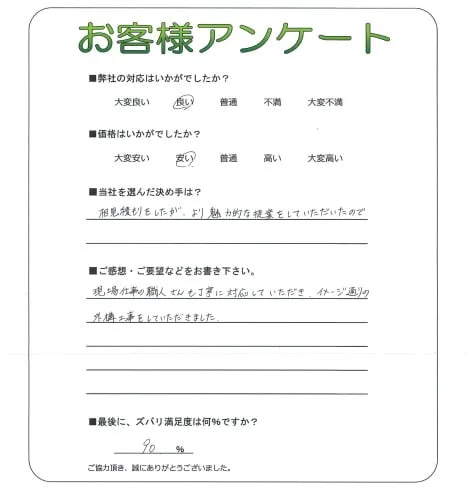 お客様アンケート
■弊社の対応はいかがでしたか？
大変良い 良い 普通 不満 大変不満
■価格はいかがでしたか？
大変安い 安い 普通 高い 大変高い
■当社を選んだ決め手は？
相見積りをしたが、より魅力的な提案をしていただいたので
■ご感想・ご要望などをお書き下さい。
現場仕事の職人さんも丁寧に対応していただき、イメージ通りの
外構工事をしていただきました。
■最後に、ズバリ満足度は何%ですか？
90 %
ご協力頂き、誠にありがとうございました。